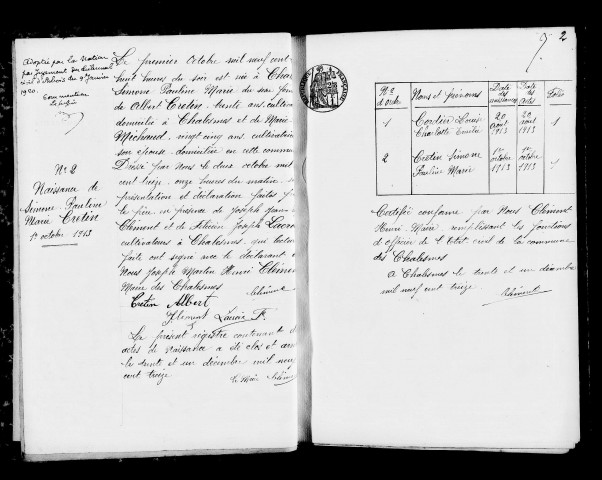 Adoptée par la Nation
par Jugement du
civil d'Arbois du 9 Janvier
1920.
Pour mention
Le Greffier
N° 2
Naissance de
Simone Pauline
Marie Cretin
1er octobre 1913
Le premier Octobre mil neuf cent
huit heures du soir est née à Cha
Simone Pauline Marie du sexe
de Albert Cretin trente ans, cultiva
domicilié à Chalesmes et de Marie
Michaud, vingt cinq ans, cultivatrice
son épouse domiciliée en cette commune
Dressé par Nous le deux octobre mil
cent treize, onze heures du matin, su
présentation et déclaration faites p
le père, en présence de Joseph
Clément et de Félicien Joseph Lacroi
cultivateurs à Chalesmes, qui lecture
faite ont signé avec le déclarant e
Nous Joseph Martin Henri Clémen
Maire des Chalesmes
Cretin Albert
Clément Lacroix F.
Le présent registre contenant d
actes de Naissance a été clos et arr
le trente et un décembre mil neuf
cent treize
Le Maire
2
N° d'ordre Noms et prénoms Date des naissances Date des Actes Folio
1 Charlotte 20 août 1913 20 août 1913 1
2 Cretin Simone Pauline Marie 1er octobre 1913 octobre 1913 1
Certifié conforme par Nous Clément
Henri, Maire, remplissant les fonctions
d'officier de l'Etat civil de la commune
des Chalesmes
A Chalesmes le trente et un décembre
mil neuf cent treize
Clément